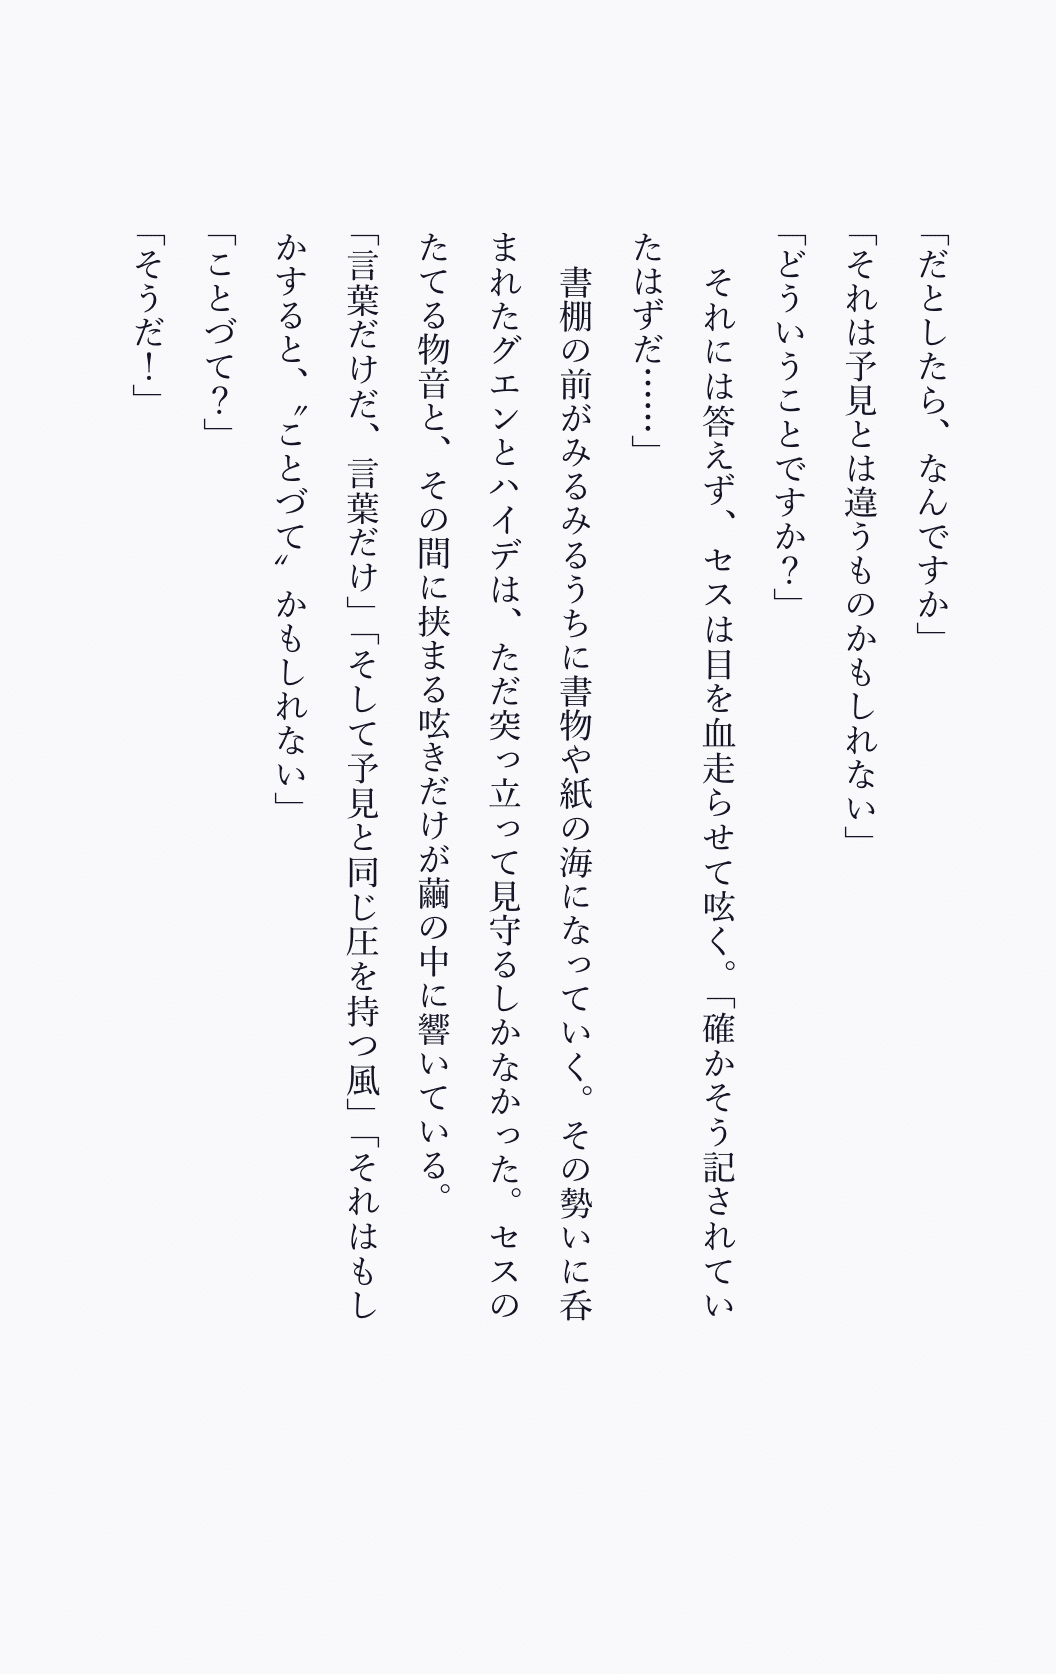 「だとしたら、なんですか」
「それは予見とは違うものかもしれない」
「どういうことですか？」
　それには答えず、セスは目を血走らせて呟く。「確かそう記されてい
たはずだ……」
　書棚の前がみるみるうちに書物や紙の海になっていく。その勢いに呑
まれたグエンとハイデは、ただ突っ立って見守るしかなかった。セスの
たてる物音と、その間に挟まる呟きだけが繭の中に響いている。
「言葉だけだ、言葉だけ」「そして予見と同じ圧を持つ風」「それはもし
かすると、〝ことづて〟かもしれない」
「ことづて？」
「そうだ！」